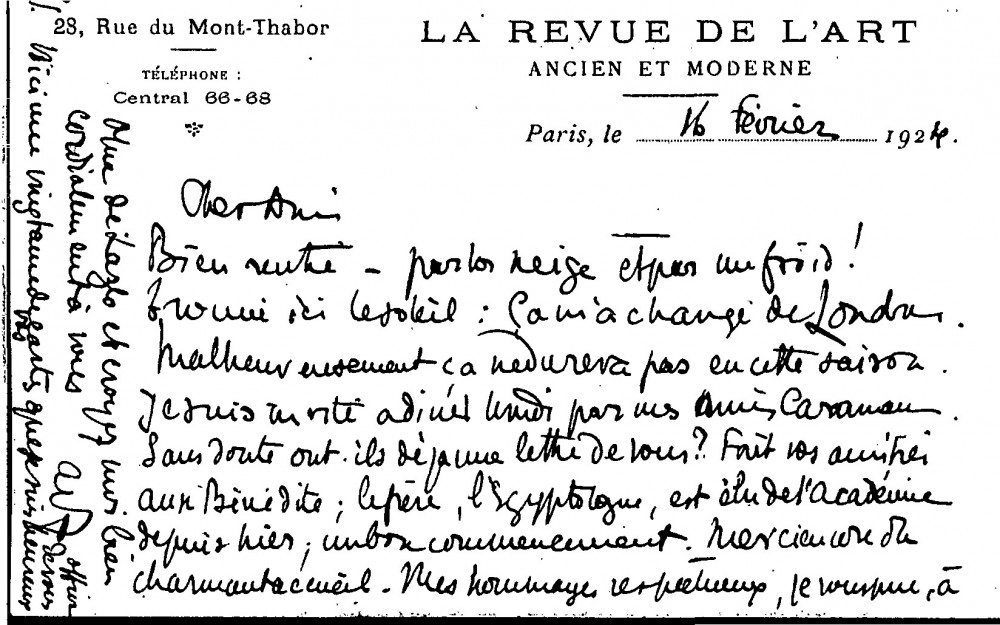 28, Rue du Mont-Thabor
TÉLÉPHONE :
Central 66-68
LA REVUE DE L'ART
ANCIEN ET MODERNE
Paris, le 16 février 1924.
Cher Ami
Bien rentré – par la neige et par un froid !
Trouvé ici le soleil : Ça m'a changé de Londres.
Malheureusement ça ne durera pas en cette saison.
Je suis invité à dîner lundi par mes amis Caraman.
Sans doute ont-ils déjà une lettre de vous ? Fait vos amitiés
aux Bénédite ; le père, l'Egyptologue, est élu de l'Académie
depuis hier ; un bon commencement. Merci encore du
charmant accueil. Mes hommages respectueux, je vous prie, à
Mme de Laszlo et croyez moi bien
cordialement à vous
D'ici une vingtaine de cartes que je suis heureux